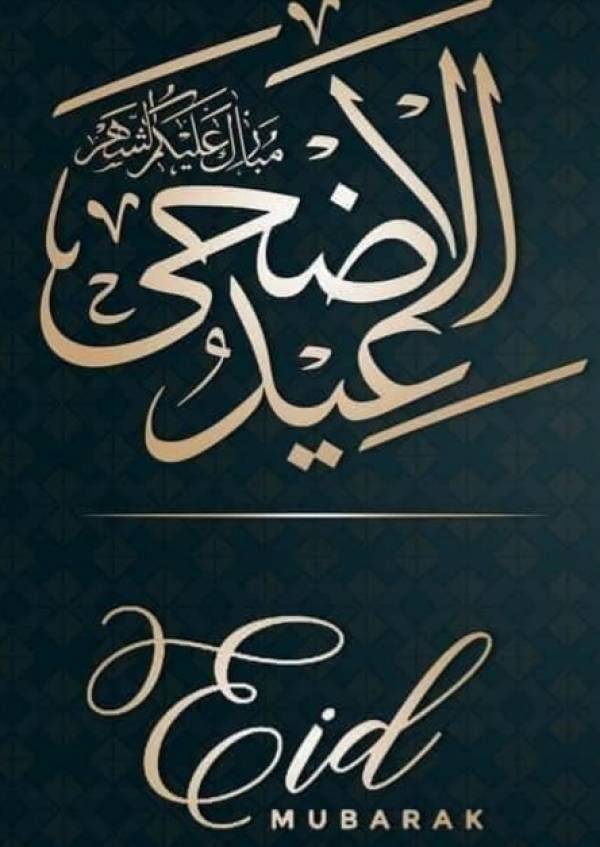 مبارك عليكم الشهر
عيد الأضحى
Eid
MUBARAK